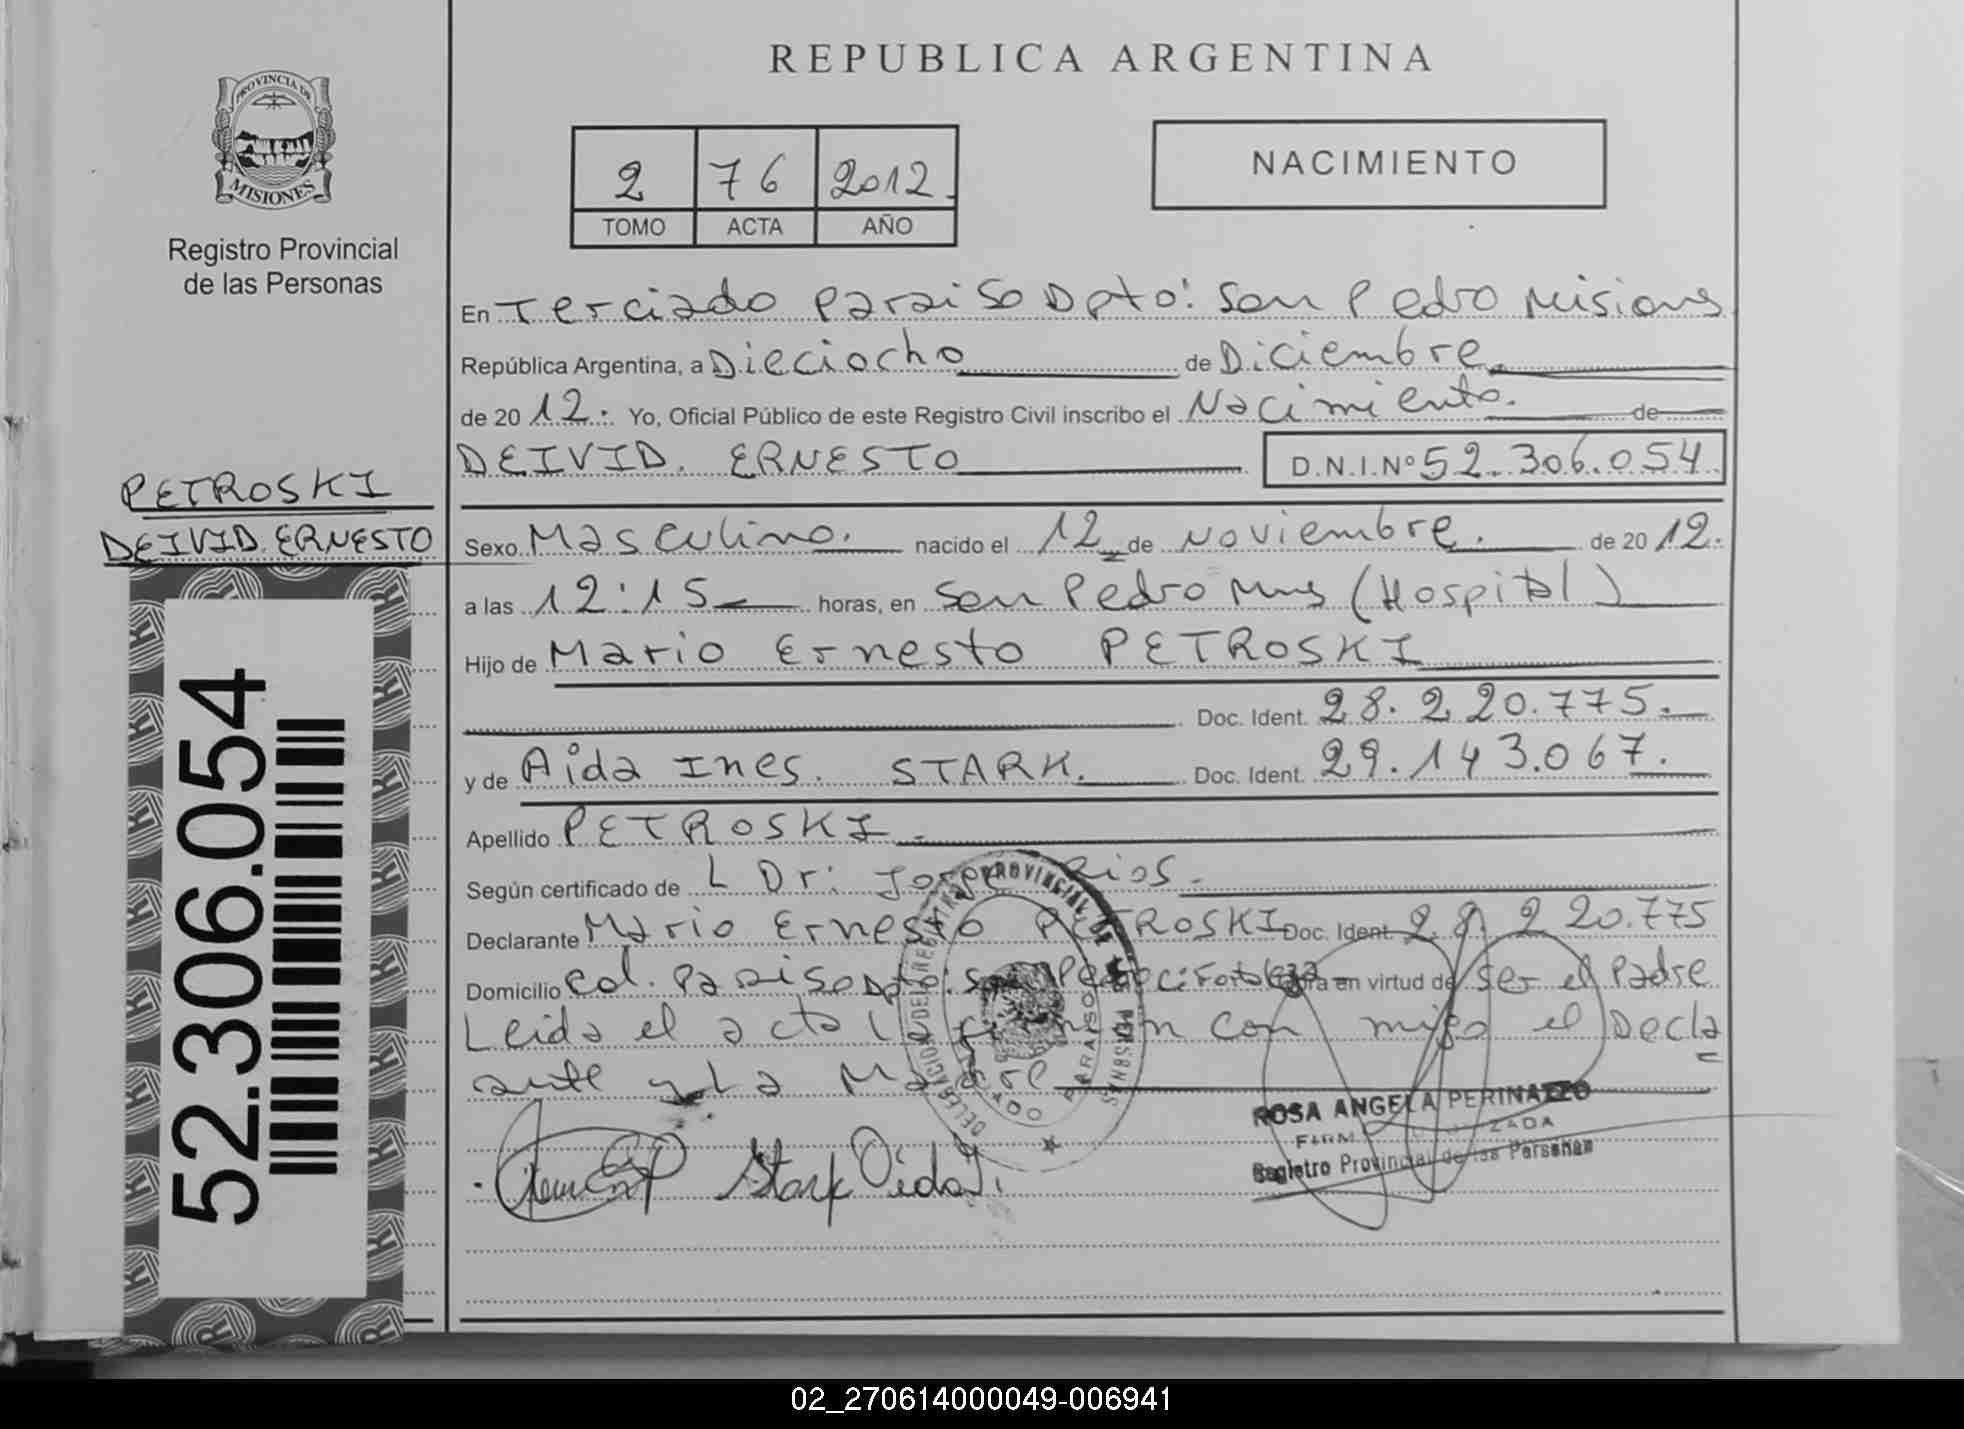 REPUBLICA ARGENTINA
PROVINCIA DE
MISIONES
Registro Provincial
de las Personas
2 76 2012
TOMO ACTA AÑO
NACIMIENTO
En Terciado Paraiso Dpto: San Pedro Misiones
República Argentina, a Dieciocho de Diciembre.
de 2012. Yo, Oficial Público de este Registro Civil inscribo el Nacimiento. de
DEIVID. ERNESTO D.N.I.Nº 52.306.054
PETROSKI
DEIVID. ERNESTO
Sexo Masculino. nacido el 12 de Noviembre. de 2012.
a las 12:15 horas, en San Pedro Mnes (Hospital)
Hijo de Mario Ernesto PETROSKI
Doc. Ident. 28.220.775.
y de Aida Ines. STARK. Doc. Ident. 29.143.067.
Apellido PETROSKI.
Según certificado de L Dr: Jorge Rios.
Declarante Mario Ernesto PETROSKI Doc. Ident. 28.220.775
Domicilio Col. Paraiso Dpto: San Pedro C: Fortaleza en virtud de Ser el Padre
Leida el acta la firman con migo el Decla
ante y La Madre
52.306.054
DELEGACION DEL REGISTRO PROVINCIAL DE LAS PERSONAS
PARAISO
Stark Aida I.
ROSA ANGELA PERINAZZO
Registro Provincial de las Personas
02_270614000049-006941